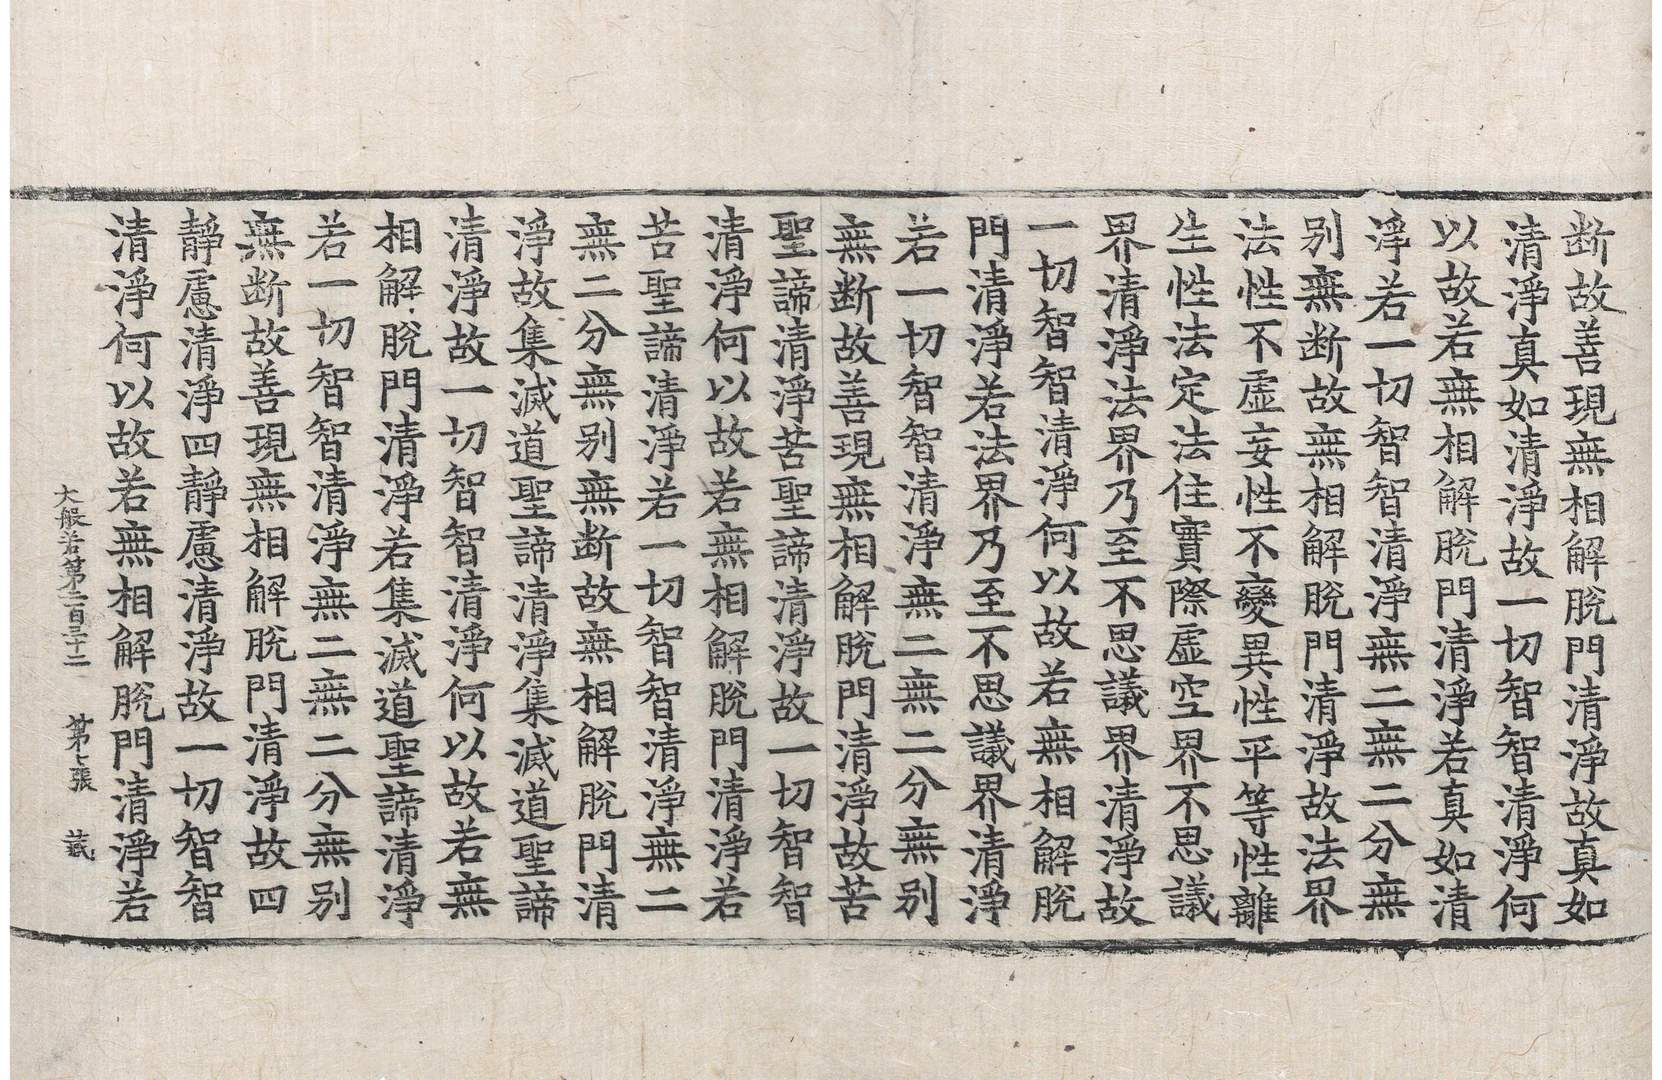 断故善現無相解脫門清淨故真如
清淨真如清淨故一切智智清淨何
以故若無相解脫門清淨若真如清
淨若一切智智清淨無二無二分無
別無断故無相解脫門清淨故法界
法性不虛妄性不變異性平等性離
生性法定法住實際虛空界不思議
界清淨法界乃至不思議界清淨故
一切智智清淨何以故若無相解脫
門清淨若法界乃至不思議界清淨
若一切智智清淨無二無二分無別
無断故善現無相解脫門清淨故苦
聖諦清淨苦聖諦清淨故一切智智
清淨何以故若無相解脫門清淨若
苦聖諦清淨若一切智智清淨無二
無二分無別無断故無相解脫門清
淨故集滅道聖諦清淨集滅道聖諦
清淨故一切智智清淨何以故若無
相解脫門清淨若集滅道聖諦清淨
若一切智智清淨無二無二分無別
無断故善現無相解脫門清淨故四
靜慮清淨四靜慮清淨故一切智智
清淨何以故若無相解脫門清淨若
大般若第二百三十二 第七張 藏